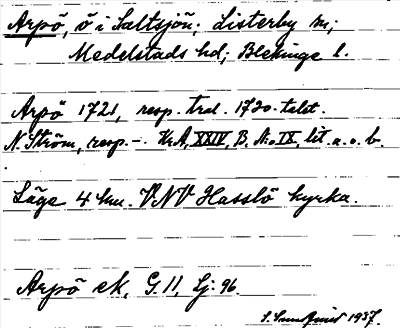 Arpö, ö i Saltsjön; Listerby sn;
Medelstads hd; Blekinge l.
Arpö 1721, resp. trad. 1720-talet.
N. Ström, resp. –. Kr.A, XXIV, B. No. IX, lit. a. o. b.
Läge 4 km. VNV Hasslö kyrka.
Arpö ek, G. 11, Lj: 96
1937.